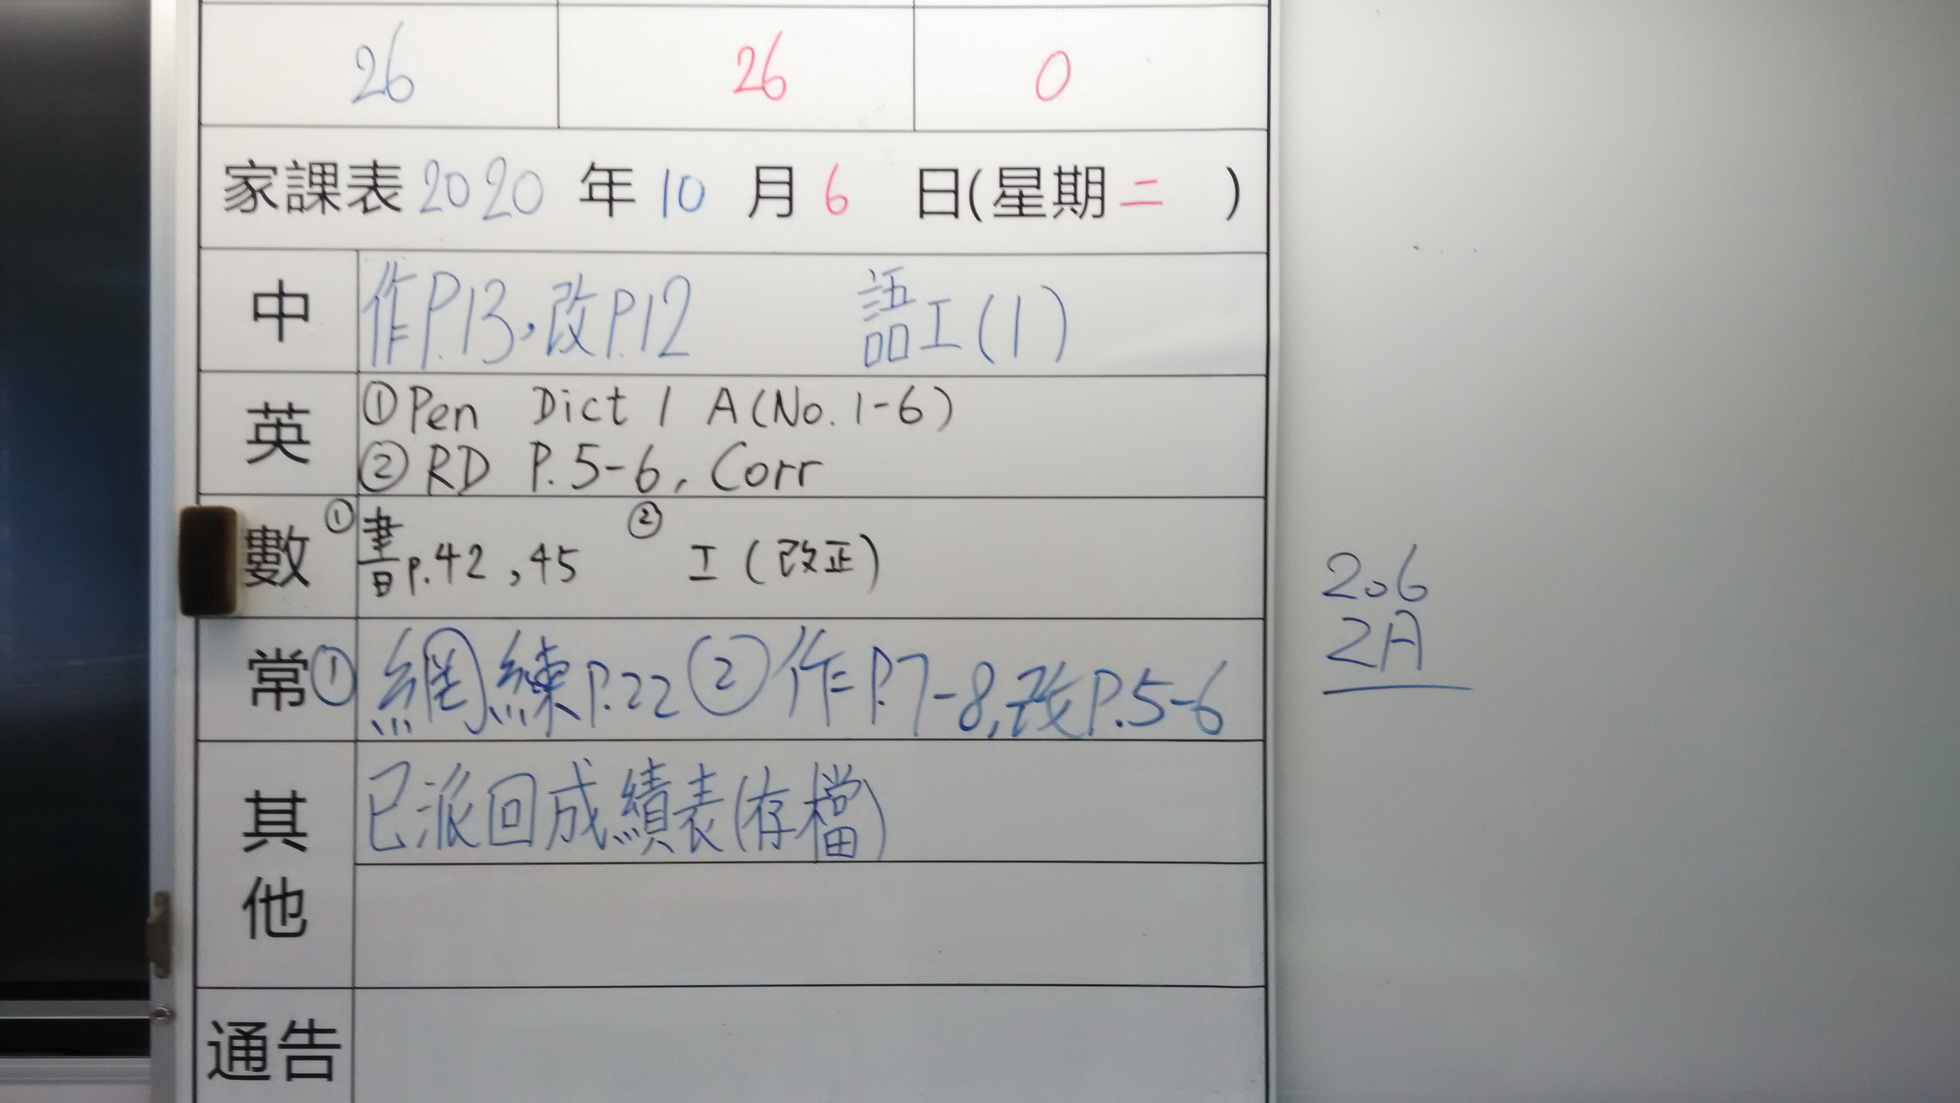 26 26 0
家課表 2020 年 10 月 6 日(星期二 )
中 作P.13,改P.12 語工(1)
英 ①Pen Dict 1 A(No.1-6)
②RD P.5-6, Corr
數 ①書p.42,45 ②工(改正)
常 ①網練P.22 ②作P.7-8,改P.5-6
其他 已派回成績表(存檔)
通告
206
2A